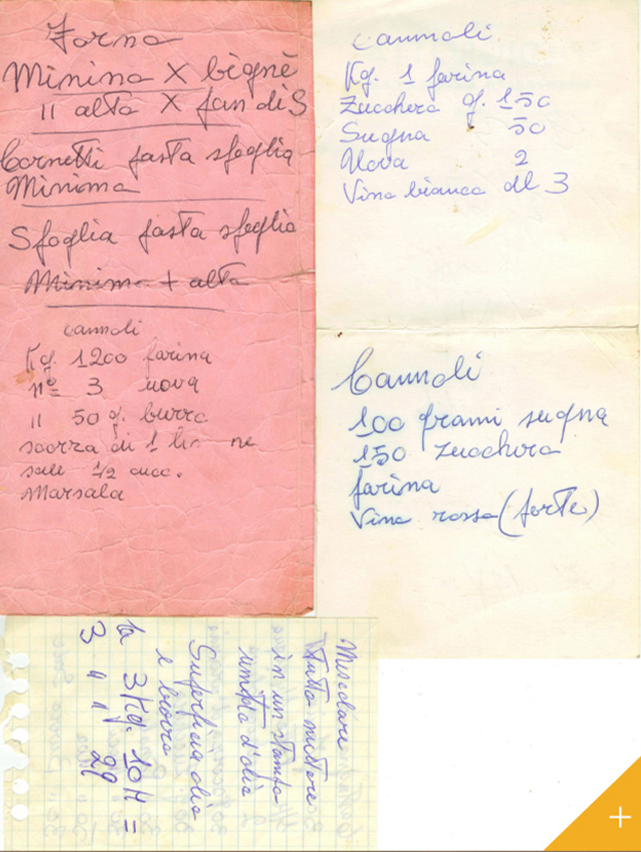 Forno
Minima X bignè
11 alta X pan di S
Cornetti pasta sfoglia
Minima
Sfoglia pasta sfoglia
Minima + alta
cannoli
Kg. 1200 farina
nº 3 uova
11 50 g. burro
scorza di 1 li ne
sale 1/2 cucc.
Marsala
Cannoli
Kg. 1 farina
Zucchero g. 150
Sugna 50
Uova 2
Vino bianco dl 3
Cannoli
100 grami sugna
150 zucchero
farina
Vino rosso (forte)
Miscelare
tutto mettere
in un stampo
unito d'olio
Superficie olio
e burro
la 3 Kg. 10H =
3 11 11 29
+